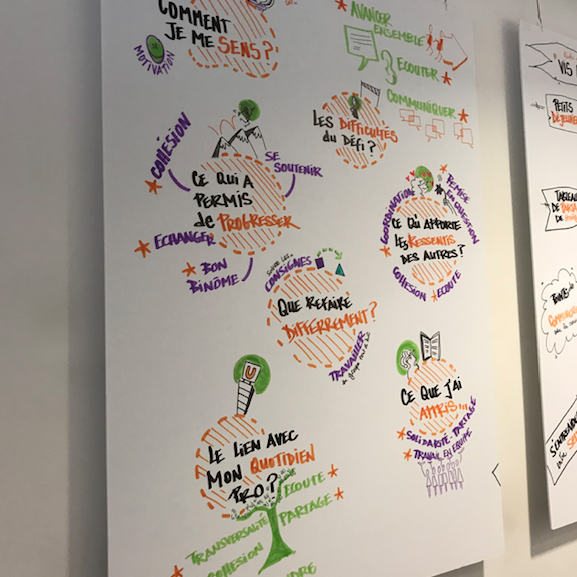 COMMENT
JE ME SENS?
MOTIVATION
AVANCER
ENSEMBLE
3
ECOUTER
COMMUNIQUER
LES DIFFICULTÉS
DU DÉFI?
COHÉSION
SE
SOUTENIR
CE QUI A
PERMIS
de PROGRESSER
ECHANGER
BON
BINÔME
COORDINATION
REMISE
EN QUESTION
CE QU'APPORTE
LES RESSENTIS
DES AUTRES?
COHESION
ECOUTE
CONSIGNES
QUE REFAIRE
DIFFERREMENT?
TRAVAILLER
CE QUE J'AI
APPRIS...
SOLIDARITÉ PARTAGE
TRAVAIL EN EQUIPE
LE LIEN AVEC
MON QUOTIDIEN
PRO?
ECOUTE
PARTAGE
TRANSVERSALITÉ
COHESION
VIS
PETITS